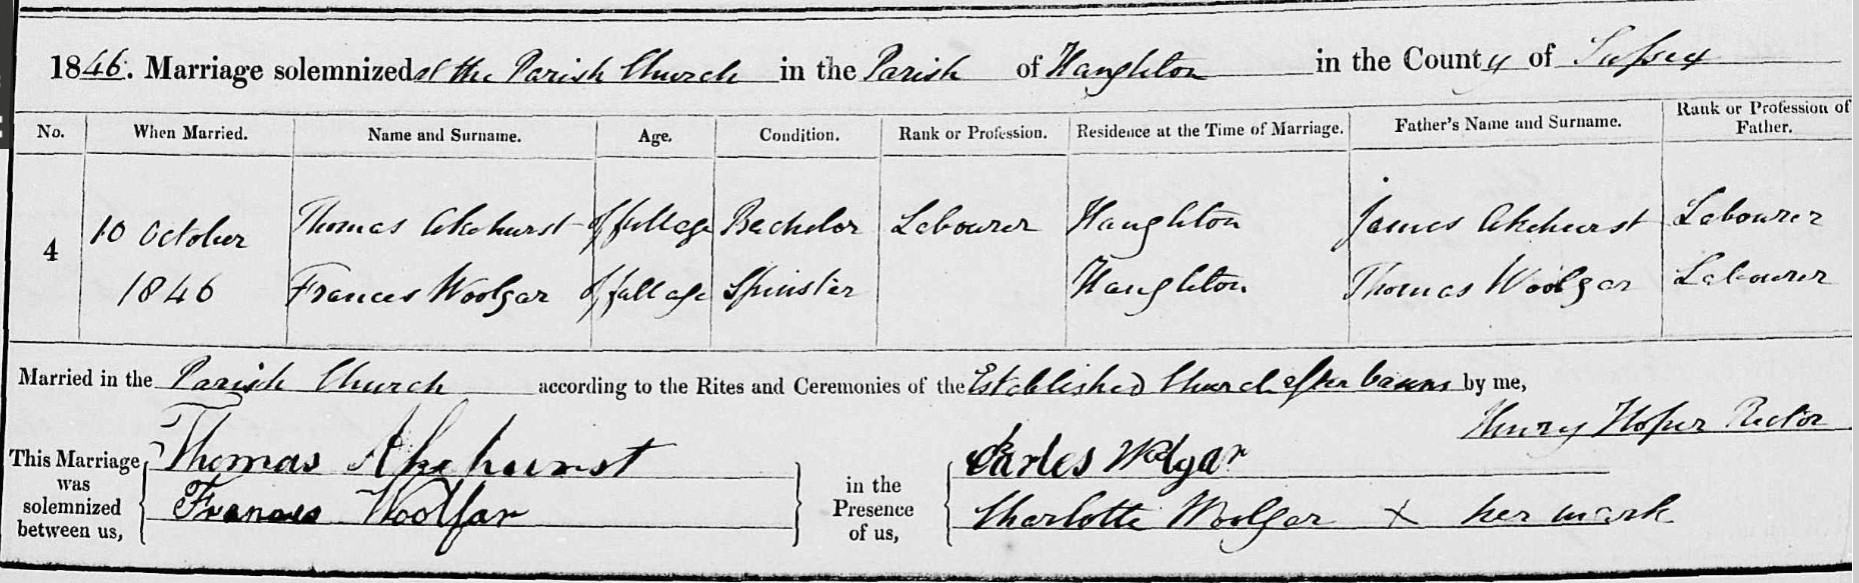 1846. Marriage solemnized at the Parish Church in the Parish of Hangleton in the County of Sussex
No. When Married. Name and Surname. Age. Condition. Rank or Profession. Residence at the Time of Marriage. Father's Name and Surname. Rank or Profession of Father.
4 10 October Thomas Akehurst of full age Bachelor Labourer Hangleton James Akehurst Labourer
1846 Frances Woolgar of full age Spinster Hangleton Thomas Woolgar Labourer
Married in the Parish Church according to the Rites and Ceremonies of the Established Church after banns by me,
Henry Hoper Rector
This Marriage was solemnized between us, Thomas Akehurst in the Presence of us, Carles Wolgar
Frances Woolgar Charlotte Woolgar X her mark